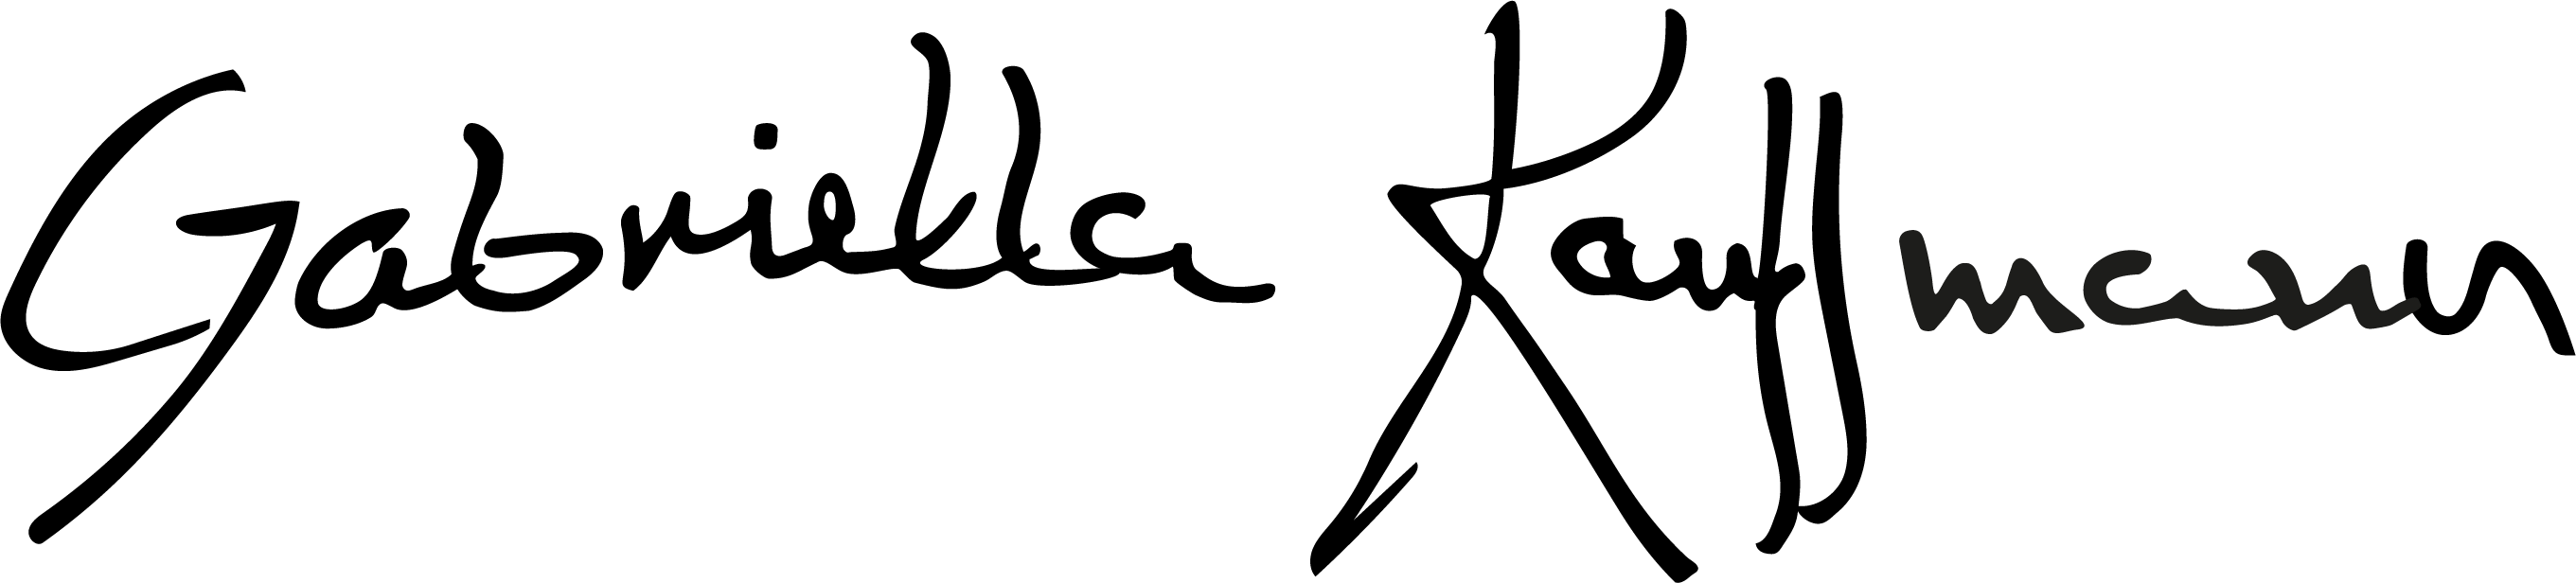 Gabriella Kauffmann